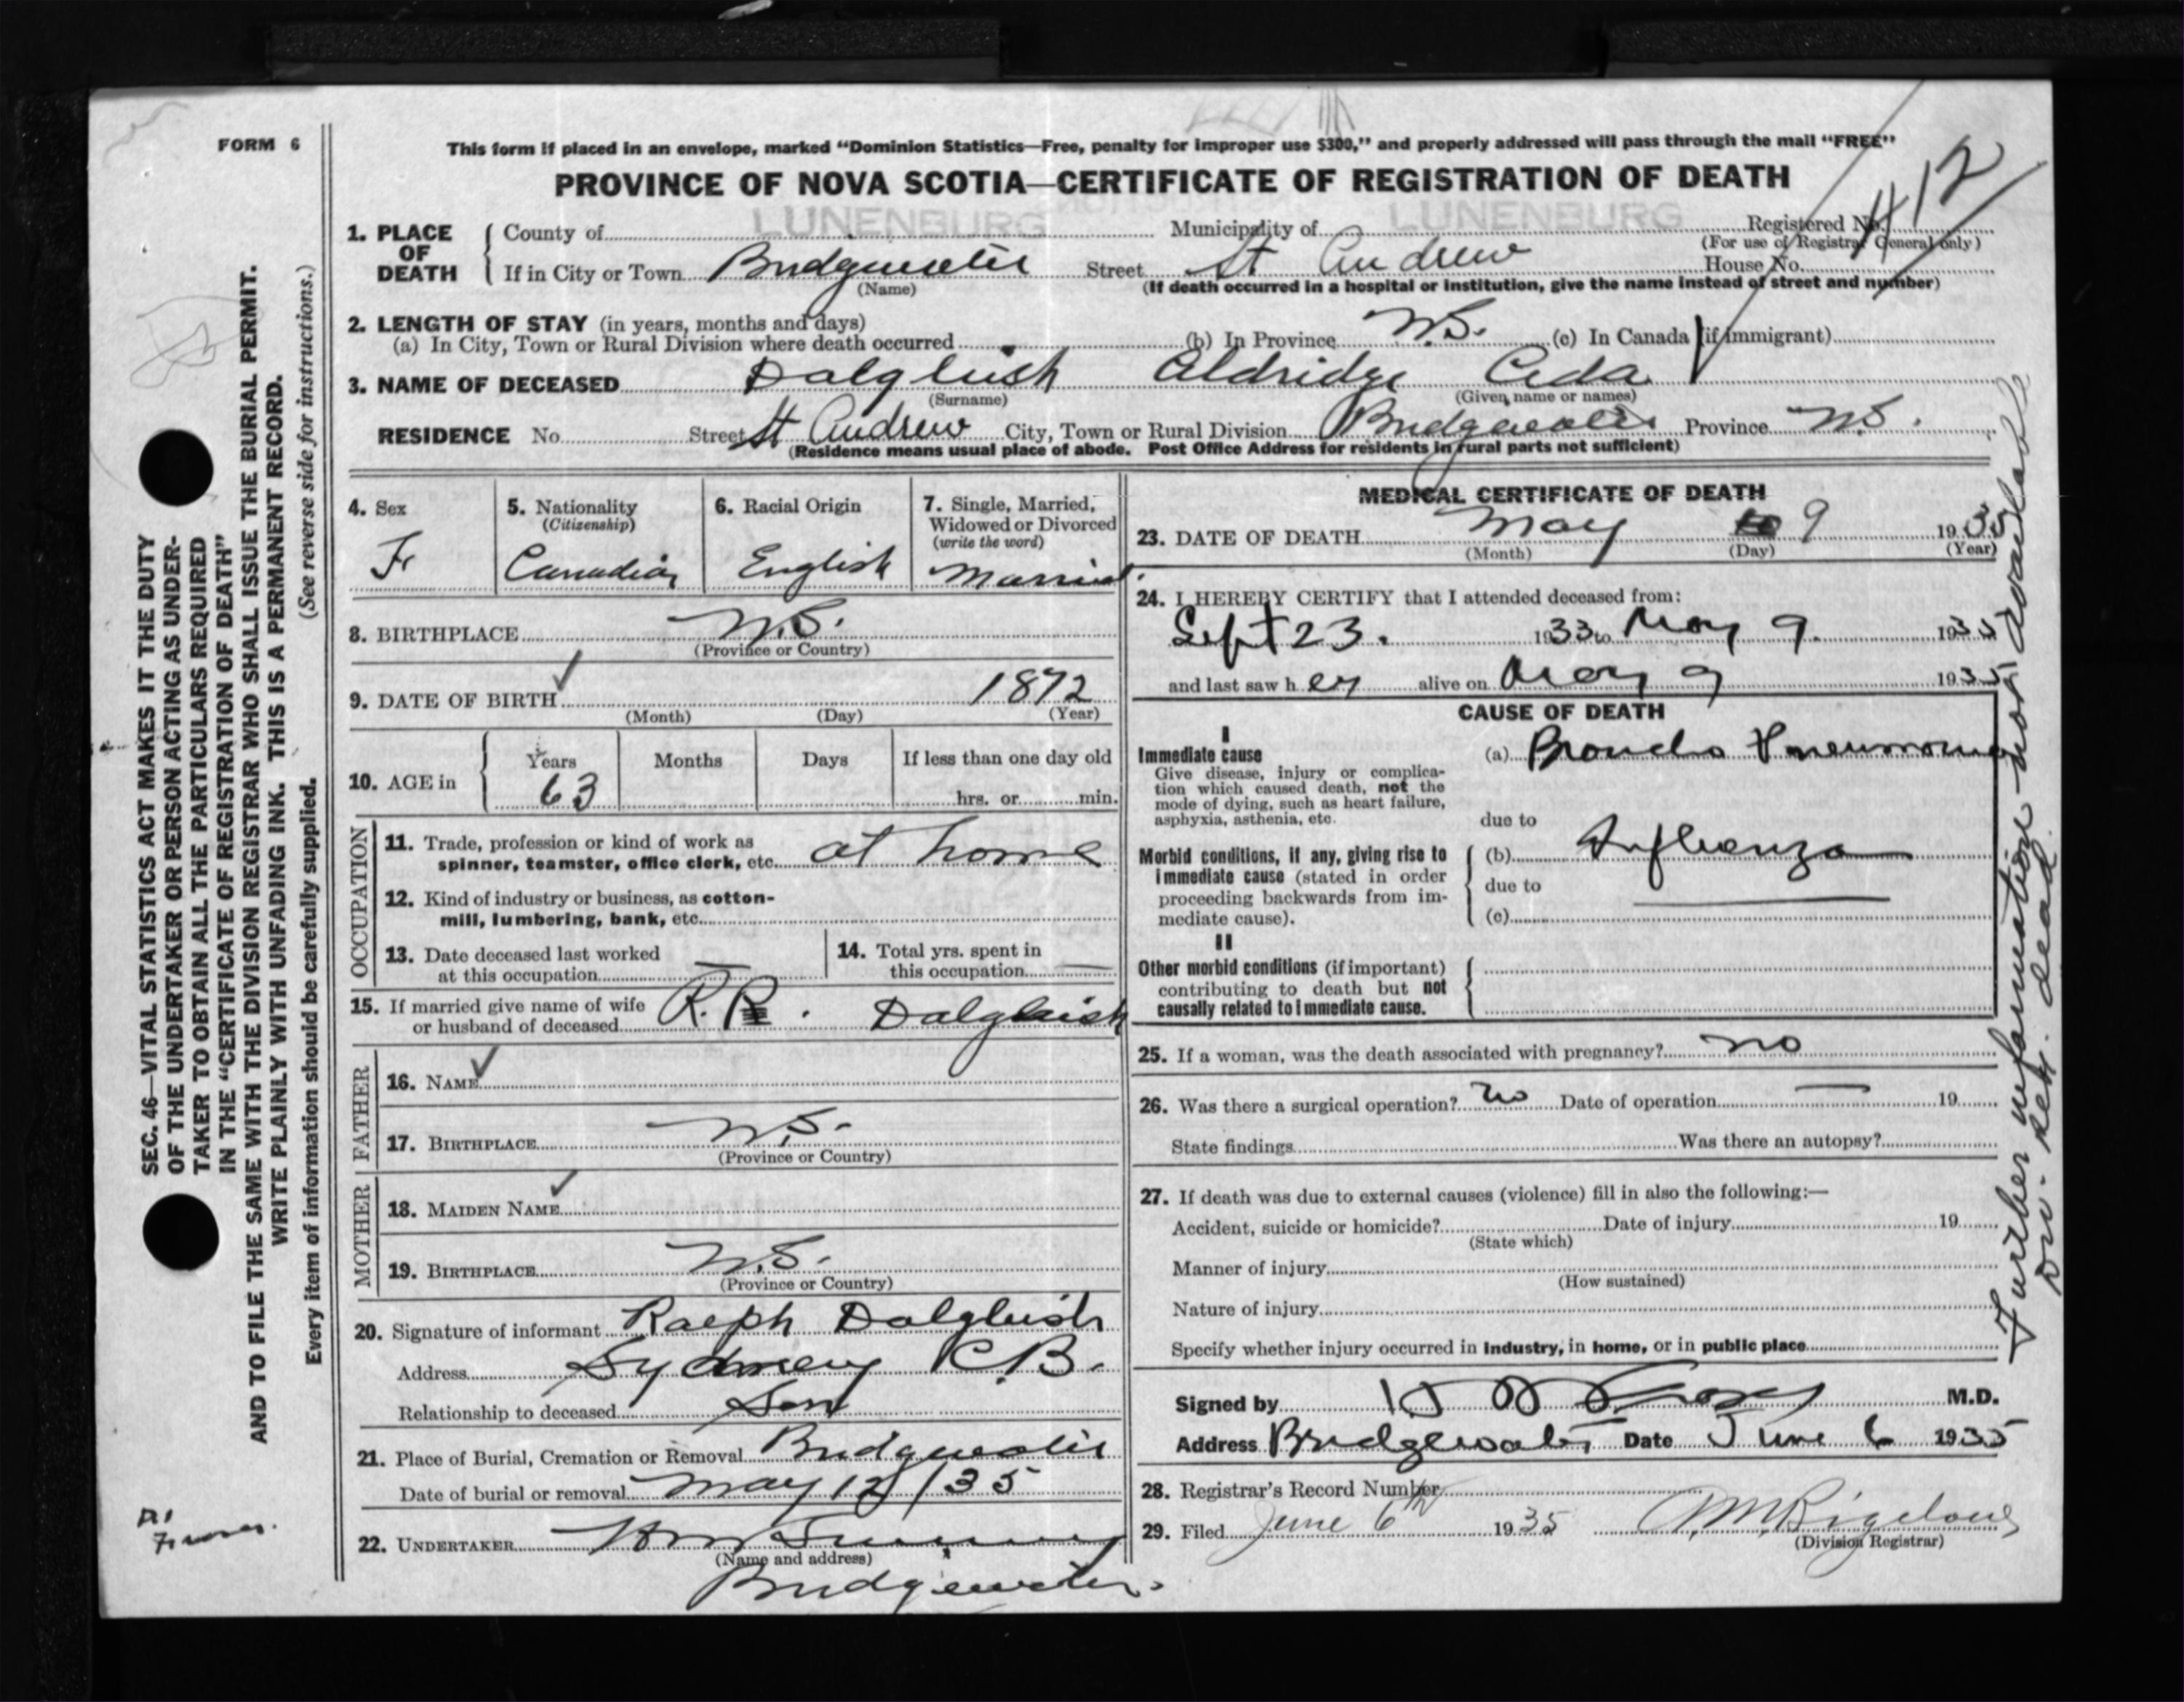 FORM 6
This form if placed in an envelope, marked “Dominion Statistics—Free, penalty for improper use $300,” and properly addressed will pass through the mail “FREE”
PROVINCE OF NOVA SCOTIA—CERTIFICATE OF REGISTRATION OF DEATH
1. PLACE OF DEATH
County of LUNENBURG Municipality of LUNENBURG Registered No. 412
(For use of Registrar General only)
If in City or Town Bridgewater Street St Andrew House No.
(Name) (If death occurred in a hospital or institution, give the name instead of street and number)
2. LENGTH OF STAY (in years, months and days)
(a) In City, Town or Rural Division where death occurred (b) In Province N.S. (c) In Canada (if immigrant)
3. NAME OF DECEASED Dalgleish Aldridge Ada
(Surname) (Given name or names)
RESIDENCE No. Street St Andrew City, Town or Rural Division Bridgewater Province N.S.
(Residence means usual place of abode. Post Office Address for residents in rural parts not sufficient)
4. Sex F.
5. Nationality (Citizenship) Canadian
6. Racial Origin English
7. Single, Married, Widowed or Divorced (write the word) Married
8. BIRTHPLACE N.S.
(Province or Country)
9. DATE OF BIRTH 1872
(Month) (Day) (Year)
10. AGE in Years 63 Months Days If less than one day old hrs. or min.
OCCUPATION
11. Trade, profession or kind of work as spinner, teamster, office clerk, etc. at home
12. Kind of industry or business, as cotton-mill, lumbering, bank, etc.
13. Date deceased last worked at this occupation —
14. Total yrs. spent in this occupation —
15. If married give name of wife or husband of deceased R.R. Dalgleish
FATHER
16. NAME
17. BIRTHPLACE N.S.
(Province or Country)
MOTHER
18. MAIDEN NAME
19. BIRTHPLACE N.S.
(Province or Country)
20. Signature of informant Ralph Dalgleish
Address Sydney C.B.
Relationship to deceased Son
21. Place of Burial, Cremation or Removal Bridgewater
Date of burial or removal May 12/35
22. UNDERTAKER
(Name and address)
Bridgewater.
MEDICAL CERTIFICATE OF DEATH
23. DATE OF DEATH May 9 1935
(Month) (Day) (Year)
24. I HEREBY CERTIFY that I attended deceased from:
Sept 23. 1933 to May 9. 1935
and last saw h er alive on May 9 1935
CAUSE OF DEATH
I
Immediate cause
Give disease, injury or complication which caused death, not the mode of dying, such as heart failure, asphyxia, asthenia, etc.
(a) Broncho Pneumonia
due to
Morbid conditions, if any, giving rise to immediate cause (stated in order proceeding backwards from immediate cause).
(b) Influenza
due to
(c)
II
Other morbid conditions (if important) contributing to death but not causally related to immediate cause.
25. If a woman, was the death associated with pregnancy? no
26. Was there a surgical operation? no Date of operation — 19
State findings Was there an autopsy?
27. If death was due to external causes (violence) fill in also the following:—
Accident, suicide or homicide? Date of injury 19
(State which)
Manner of injury
(How sustained)
Nature of injury
Specify whether injury occurred in industry, in home, or in public place
Signed by M.D.
Address Bridgewater Date June 6 1935
28. Registrar's Record Number
29. Filed June 6th 1935 Bigelow
(Division Registrar)
SEC. 46—VITAL STATISTICS ACT MAKES IT THE DUTY
OF THE UNDERTAKER OR PERSON ACTING AS UNDER-
TAKER TO OBTAIN ALL THE PARTICULARS REQUIRED
IN THE “CERTIFICATE OF REGISTRATION OF DEATH”
AND TO FILE THE SAME WITH THE DIVISION REGISTRAR WHO SHALL ISSUE THE BURIAL PERMIT.
WRITE PLAINLY WITH UNFADING INK. THIS IS A PERMANENT RECORD.
Every item of information should be carefully supplied. (See reverse side for instructions.)
Further information not available
Div. Reg. dead.